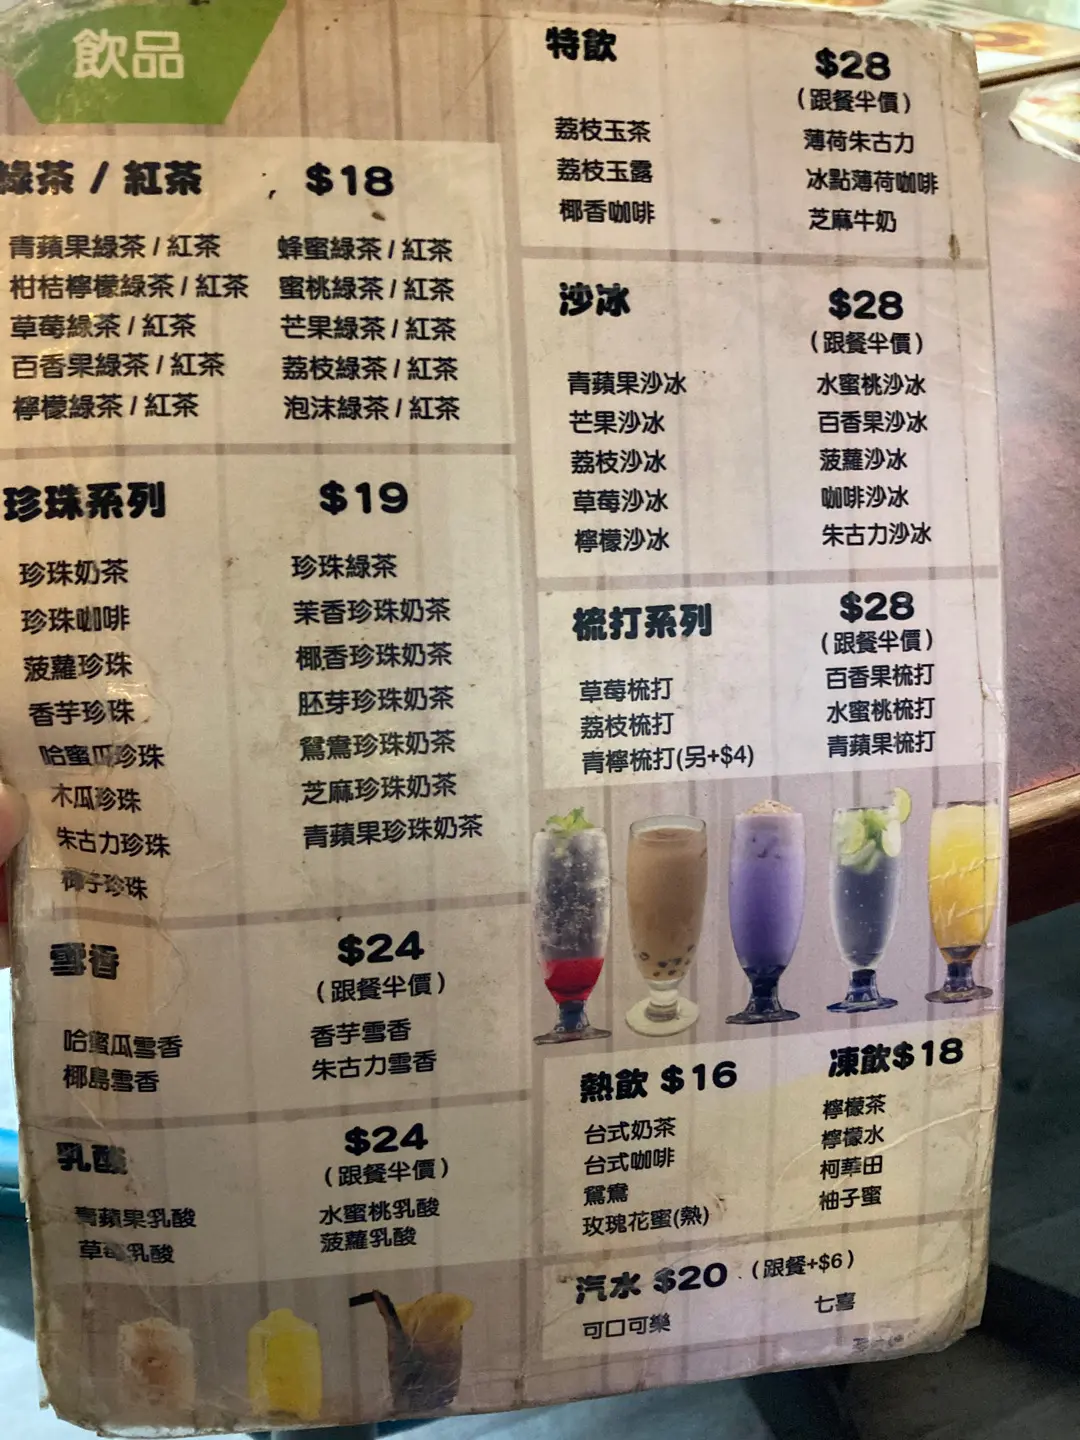 飲品
綠茶 / 紅茶 $18
青蘋果綠茶 / 紅茶 蜂蜜綠茶 / 紅茶
柑桔檸檬綠茶 / 紅茶 蜜桃綠茶 / 紅茶
草莓綠茶 / 紅茶 芒果綠茶 / 紅茶
百香果綠茶 / 紅茶 荔枝綠茶 / 紅茶
檸檬綠茶 / 紅茶 泡沫綠茶 / 紅茶
珍珠系列 $19
珍珠奶茶 珍珠綠茶
珍珠咖啡 茉香珍珠奶茶
菠蘿珍珠 椰香珍珠奶茶
香芋珍珠 胚芽珍珠奶茶
哈蜜瓜珍珠 鴛鴦珍珠奶茶
木瓜珍珠 芝麻珍珠奶茶
朱古力珍珠 青蘋果珍珠奶茶
椰子珍珠
雪香 $24
(跟餐半價)
哈蜜瓜雪香 香芋雪香
椰島雪香 朱古力雪香
乳酸 $24
(跟餐半價)
青蘋果乳酸 水蜜桃乳酸
草莓乳酸 菠蘿乳酸
特飲 $28
(跟餐半價)
荔枝玉茶 薄荷朱古力
荔枝玉露 冰點薄荷咖啡
椰香咖啡 芝麻牛奶
沙冰 $28
(跟餐半價)
青蘋果沙冰 水蜜桃沙冰
芒果沙冰 百香果沙冰
荔枝沙冰 菠蘿沙冰
草莓沙冰 咖啡沙冰
檸檬沙冰 朱古力沙冰
梳打系列 $28
(跟餐半價)
草莓梳打 百香果梳打
荔枝梳打 水蜜桃梳打
青檸梳打(另+$4) 青蘋果梳打
熱飲 $16 凍飲$18
台式奶茶 檸檬茶
台式咖啡 檸檬水
鴛鴦 柯華田
玫瑰花蜜(熱) 柚子蜜
汽水 $20 (跟餐+$6)
可口可樂 七喜